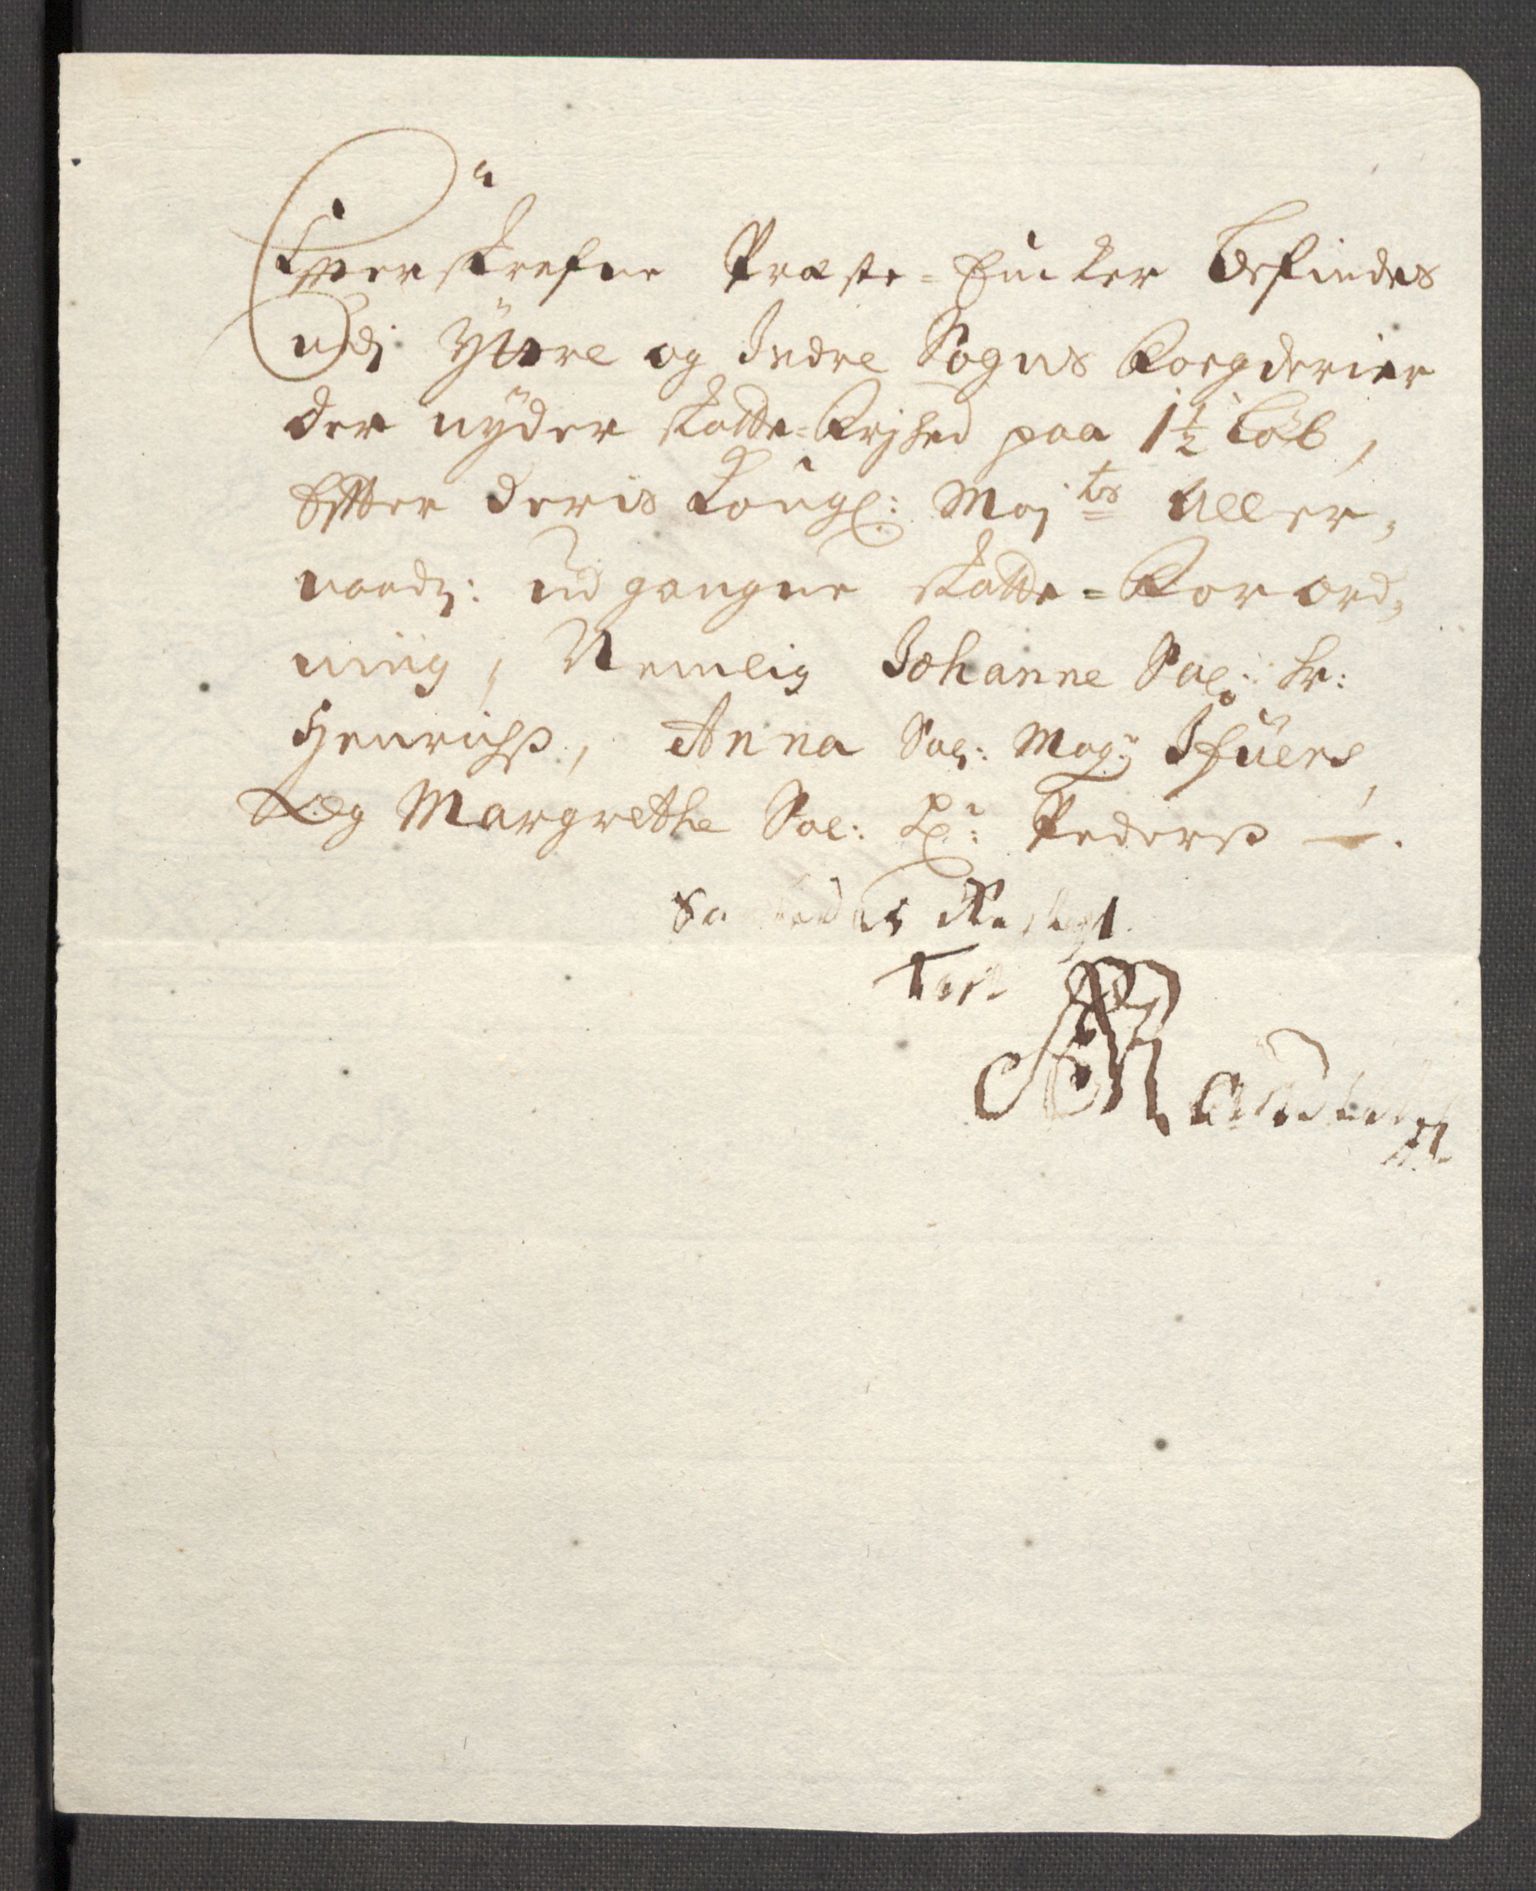 Efterskrefne Præste-Encker befindes
udj Ytre og Indre Sogns Foegderier
der nÿder skatte-Frjhed paa 1½ Løb,
Efter deris Kongl: Maj<sup>ts</sup> Aller,
naadz: udgangne skatte=Forord,
ning, Nemlig Johanne Sal: hr:
Henrichß, Anna Sal: Magr: Ifuers,
og Margrethe Sal: Hr: Pederß —.
Test